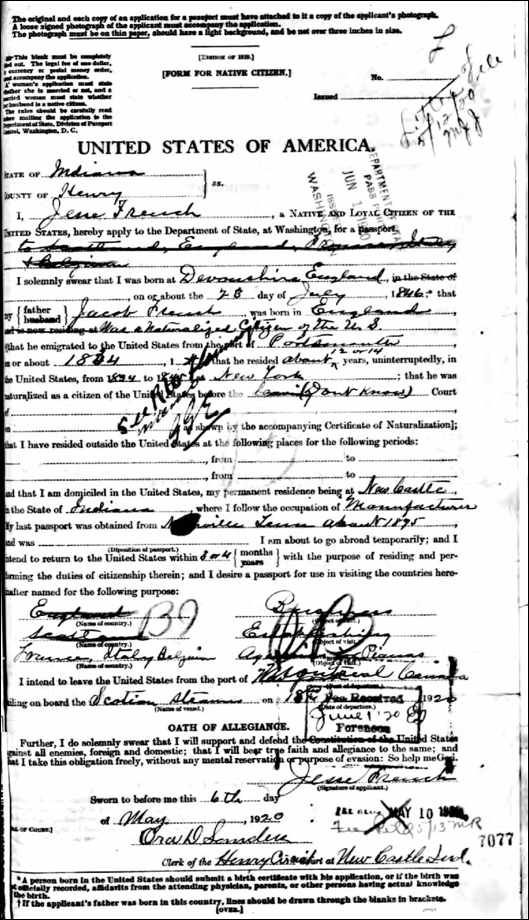 The original and each copy of an application for a passport must have attached to it a copy of the applicant's photograph.
A loose signed photograph of the applicant must accompany the application.
The photograph must be on thin paper, should have a light background, and be not over three inches in size.
This blank must be completely
out. The legal fee of one dollar,
currency or postal money order,
accompany the application.
woman's application must state
whether she is married or not, and a
married woman must state whether
husband is a native citizen.
The rules should be carefully read
mailing the application to the
Department of State, Division of Passport
Control, Washington, D. C.
[EDITION OF 1919.]
[FORM FOR NATIVE CITIZEN.]
No.
Issued
5/12/20
UNITED STATES OF AMERICA.
STATE OF Indiana
COUNTY OF Henry
ss.
DEPARTMENT
JUN 1 19
ISSUED
WASHINGTON
I, Jesse French, a NATIVE AND LOYAL CITIZEN OF THE
UNITED STATES, hereby apply to the Department of State, at Washington, for a passport.
to Scotland, England, France, Italy
& Belgium
I solemnly swear that I was born at Devonshire England, in the State of
on or about the 28 day of July, 1846; that
my {father husband} Jacob French was born in England
and is now residing at Was a Naturalized Citizen of the U.S.
that he emigrated to the United States from the port of Portsmouth
on or about 1834, 1 that he resided about 12 or 14 years, uninterruptedly, in
the United States, from 1834 to 1848 New York; that he was
naturalized as a citizen of the United States before the (Dont Know) Court
as shown by the accompanying Certificate of Naturalization];
that I have resided outside the United States at the following places for the following periods:
, from to
, from to
and that I am domiciled in the United States, my permanent residence being at New Castle,
in the State of Indiana, where I follow the occupation of Manufacturer
My last passport was obtained from Nashville Tenn about 1895
and was I am about to go abroad temporarily; and I
(Disposition of passport.)
intend to return to the United States within 3 or 4 {months years} with the purpose of residing and per-
forming the duties of citizenship therein; and I desire a passport for use in visiting the countries here-
after named for the following purpose:
England Business
(Name of country.) (Object of visit.)
Scotland Establishing
(Name of country.) (Object of visit.)
France, Italy Belgium Agencies Pianos
(Name of country.) (Object of visit.)
139
I intend to leave the United States from the port of Montreal Canada
(Port of departure.)
sailing on board the Scotian Steamer on 18th 1920
(Name of vessel.) (Date of departure.)
Fee Received
June 1 '20
Foreneen
OATH OF ALLEGIANCE.
Further, I do solemnly swear that I will support and defend the Constitution of the United States
against all enemies, foreign and domestic; that I will bear true faith and allegiance to the same; and
that I take this obligation freely, without any mental reservation or purpose of evasion: So help me God.
Jesse French
(Signature of applicant.)
Sworn to before me this 6th day
of May, 1920
[SEAL OF COURT.]
MAY 10 1920
7077
Clerk of the Henry Circuit Court at New Castle Ind.
*A person born in the United States should submit a birth certificate with his application, or if the birth was
not officially recorded, affidavits from the attending physician, parents, or other persons having actual knowledge
of the birth.
†If the applicant's father was born in this country, lines should be drawn through the blanks in brackets.
[OVER.]